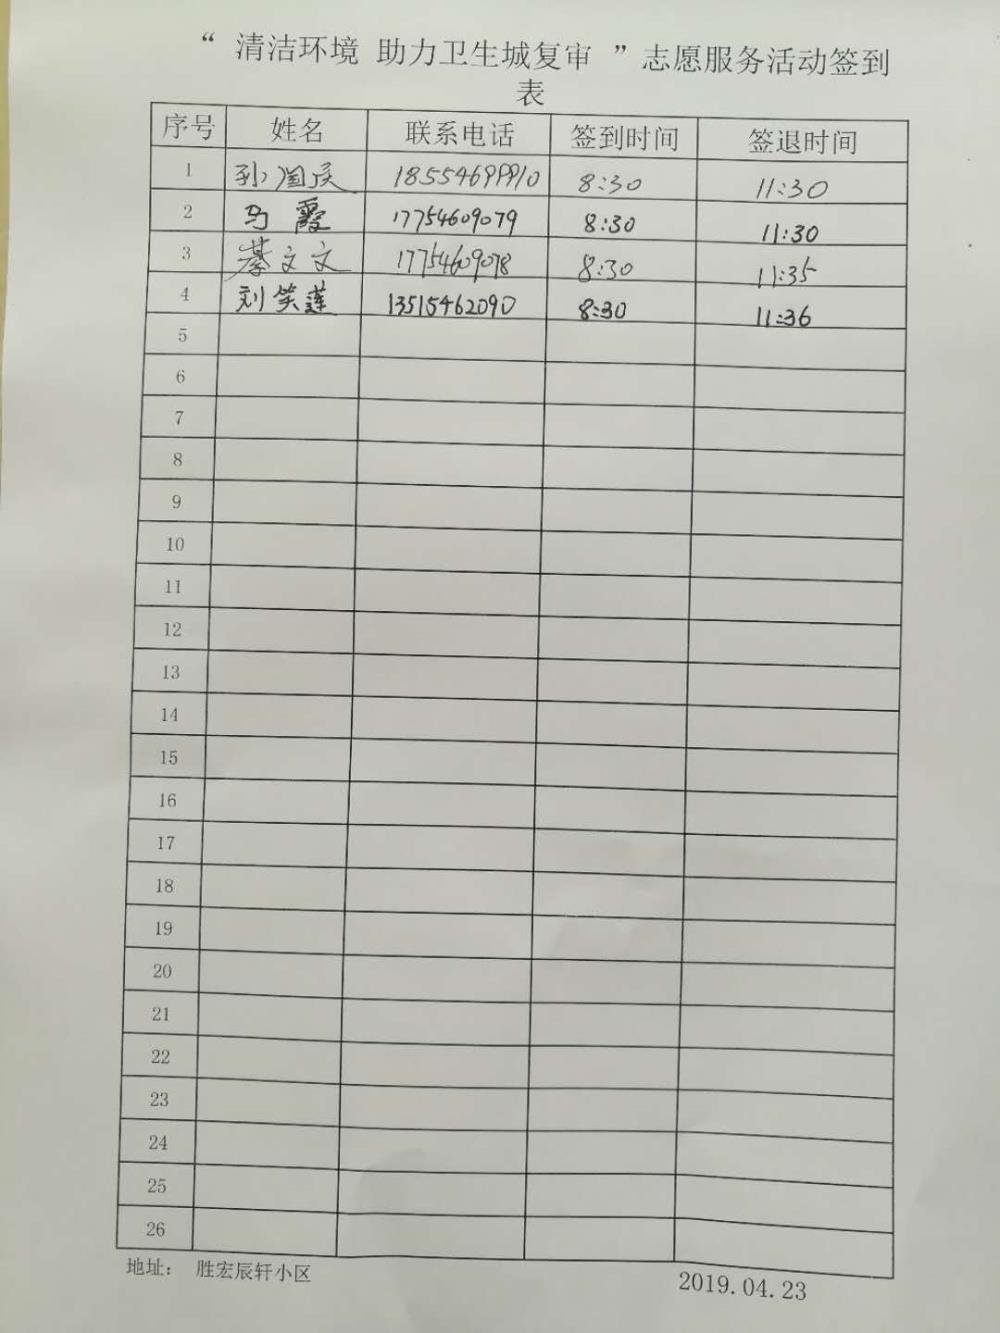 “ 清洁环境 助力卫生城复审 ” 志愿服务活动签到
表
序号 姓名 联系电话 签到时间 签退时间
1 孙国庆 18554699910 8:30 11:30
2 马霞 17754609079 8:30 11:30
3 綦文文 17754609078 8:30 11:35
4 刘笑莲 13515462090 8:30 11:36
5
6
7
8
9
10
11
12
13
14
15
16
17
18
19
20
21
22
23
24
25
26
地址： 胜宏辰轩小区 2019.04.23